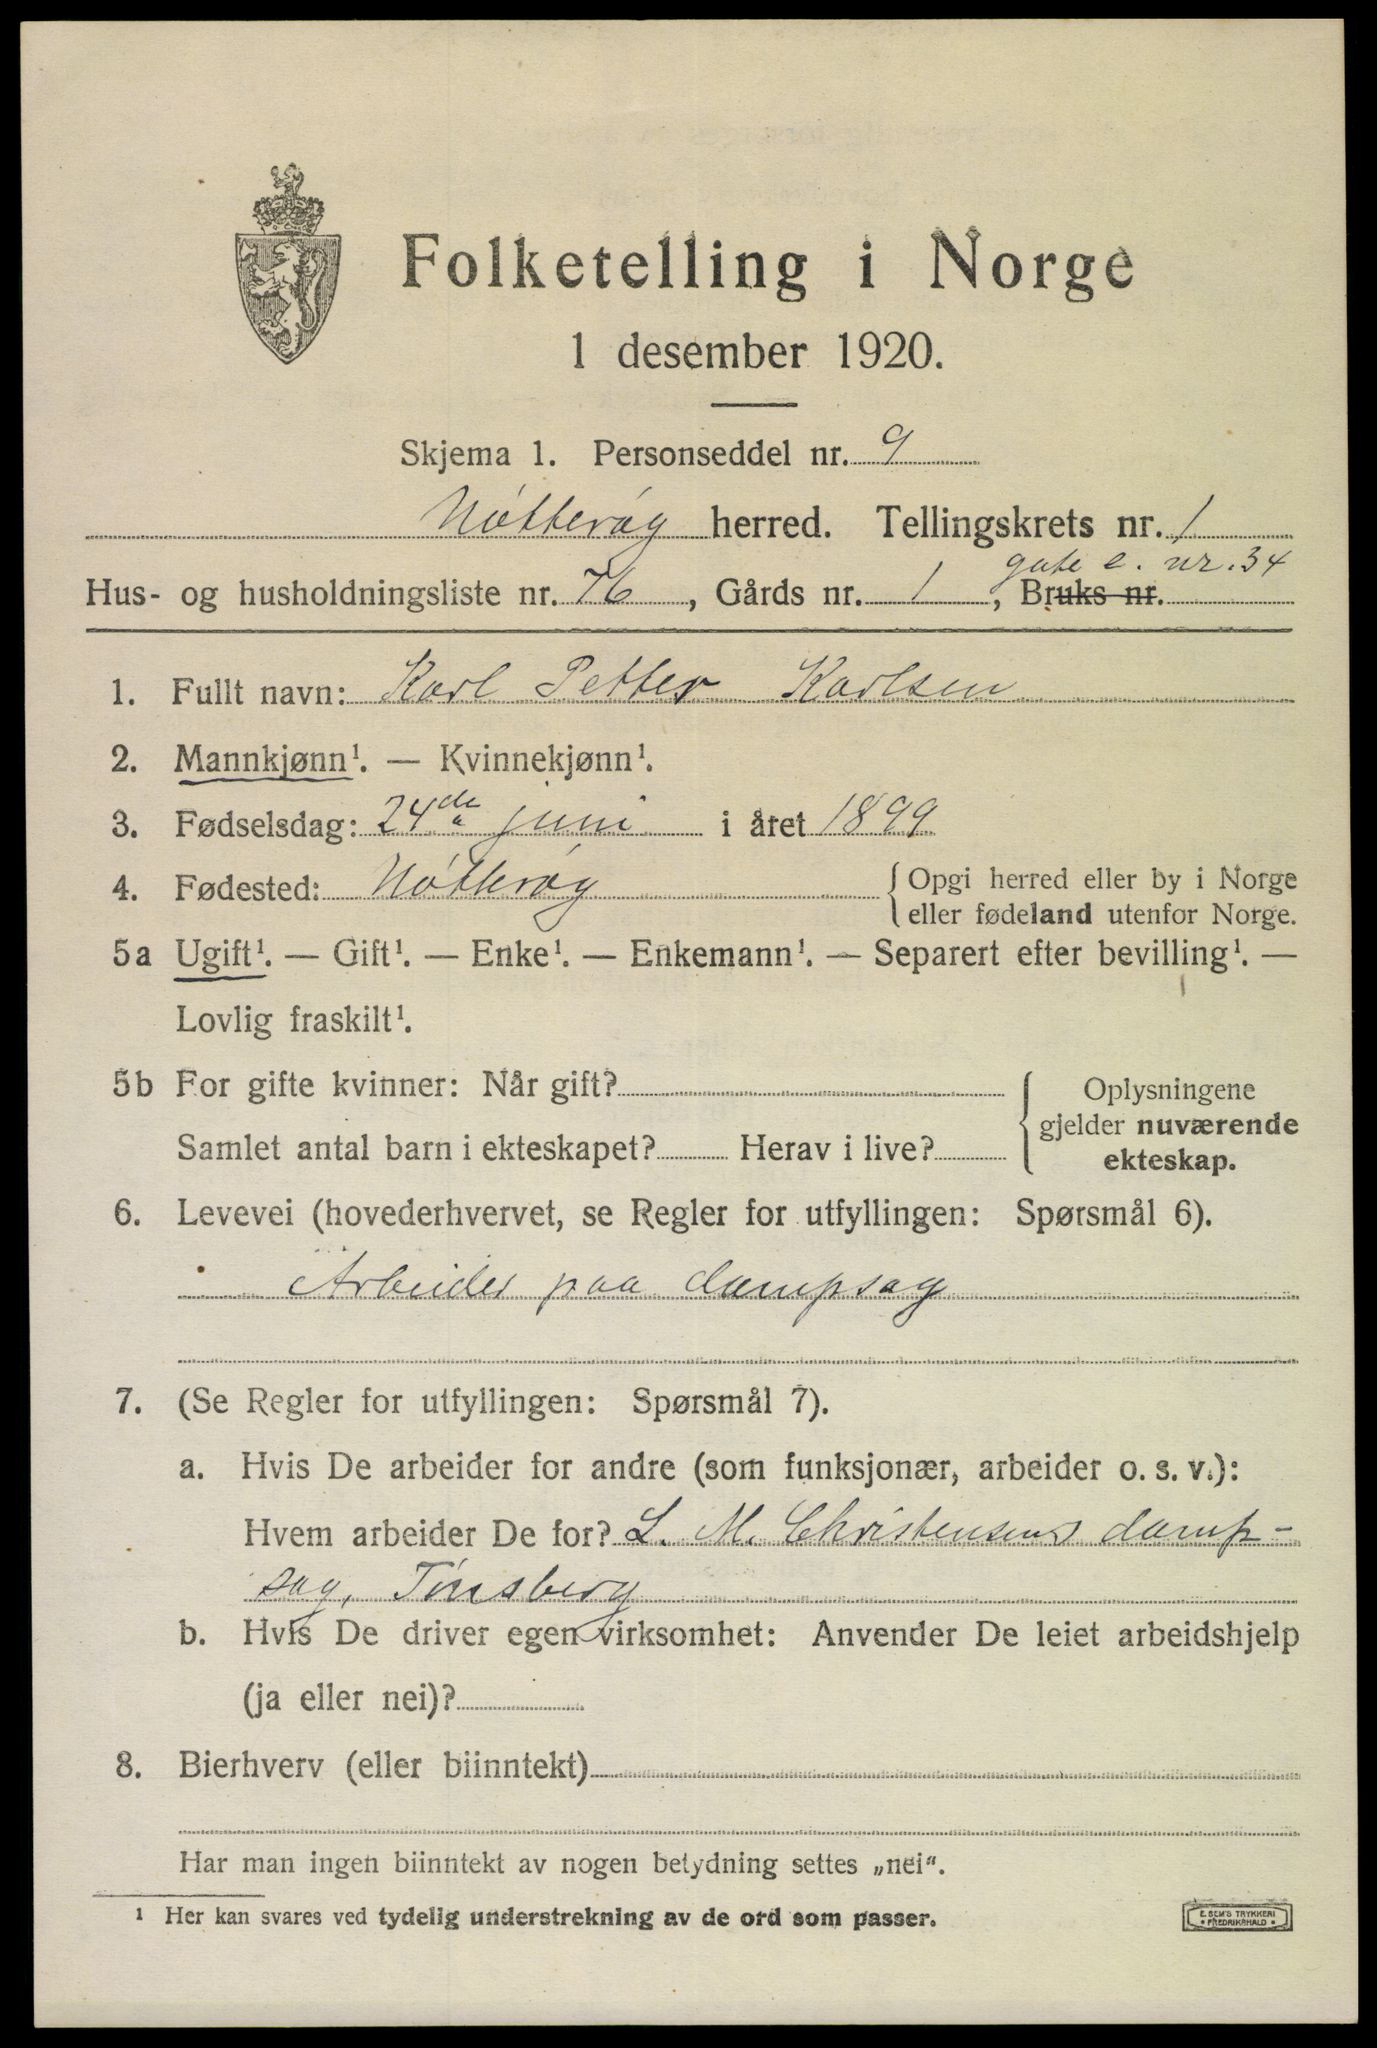 Folketelling i Norge
1 desember 1920.
Skjema 1. Personseddel nr. 9
Nötterøy herred. Tellingskrets nr. 1
gate e. nr. 34
Hus- og husholdningsliste nr. 76, Gårds nr. 1, Bruks nr.
1. Fullt navn: Karl Petter Karlsen
2. Mannkjønn¹. — Kvinnekjønn¹.
3. Fødselsdag: 24de juni i året 1899
4. Fødested: Nötterøy { Opgi herred eller by i Norge
eller fødeland utenfor Norge.
5a Ugift¹. — Gift¹. — Enke¹. — Enkemann¹. — Separert efter bevilling¹. —
Lovlig fraskilt¹.
5b For gifte kvinner: Når gift? { Oplysningene
gjelder nuværende
Samlet antal barn i ekteskapet? Herav i live?
ekteskap.
6. Levevei (hovederhvervet, se Regler for utfyllingen: Spørsmål 6).
Arbeider paa dampsag
7. (Se Regler for utfyllingen: Spørsmål 7).
a. Hvis De arbeider for andre (som funksjonær, arbeider o. s. v.):
Hvem arbeider De for? L. M. Christensens damp-
sag, Tönsberg
b. Hvis De driver egen virksomhet: Anvender De leiet arbeidshjelp
(ja eller nei)?
8. Bierhverv (eller biinntekt)
Har man ingen biinntekt av nogen betydning settes „nei“.
¹ Her kan svares ved tydelig understrekning av de ord som passer.
E. SEM'S TRYKKERI
• FREDRIKSHALD •